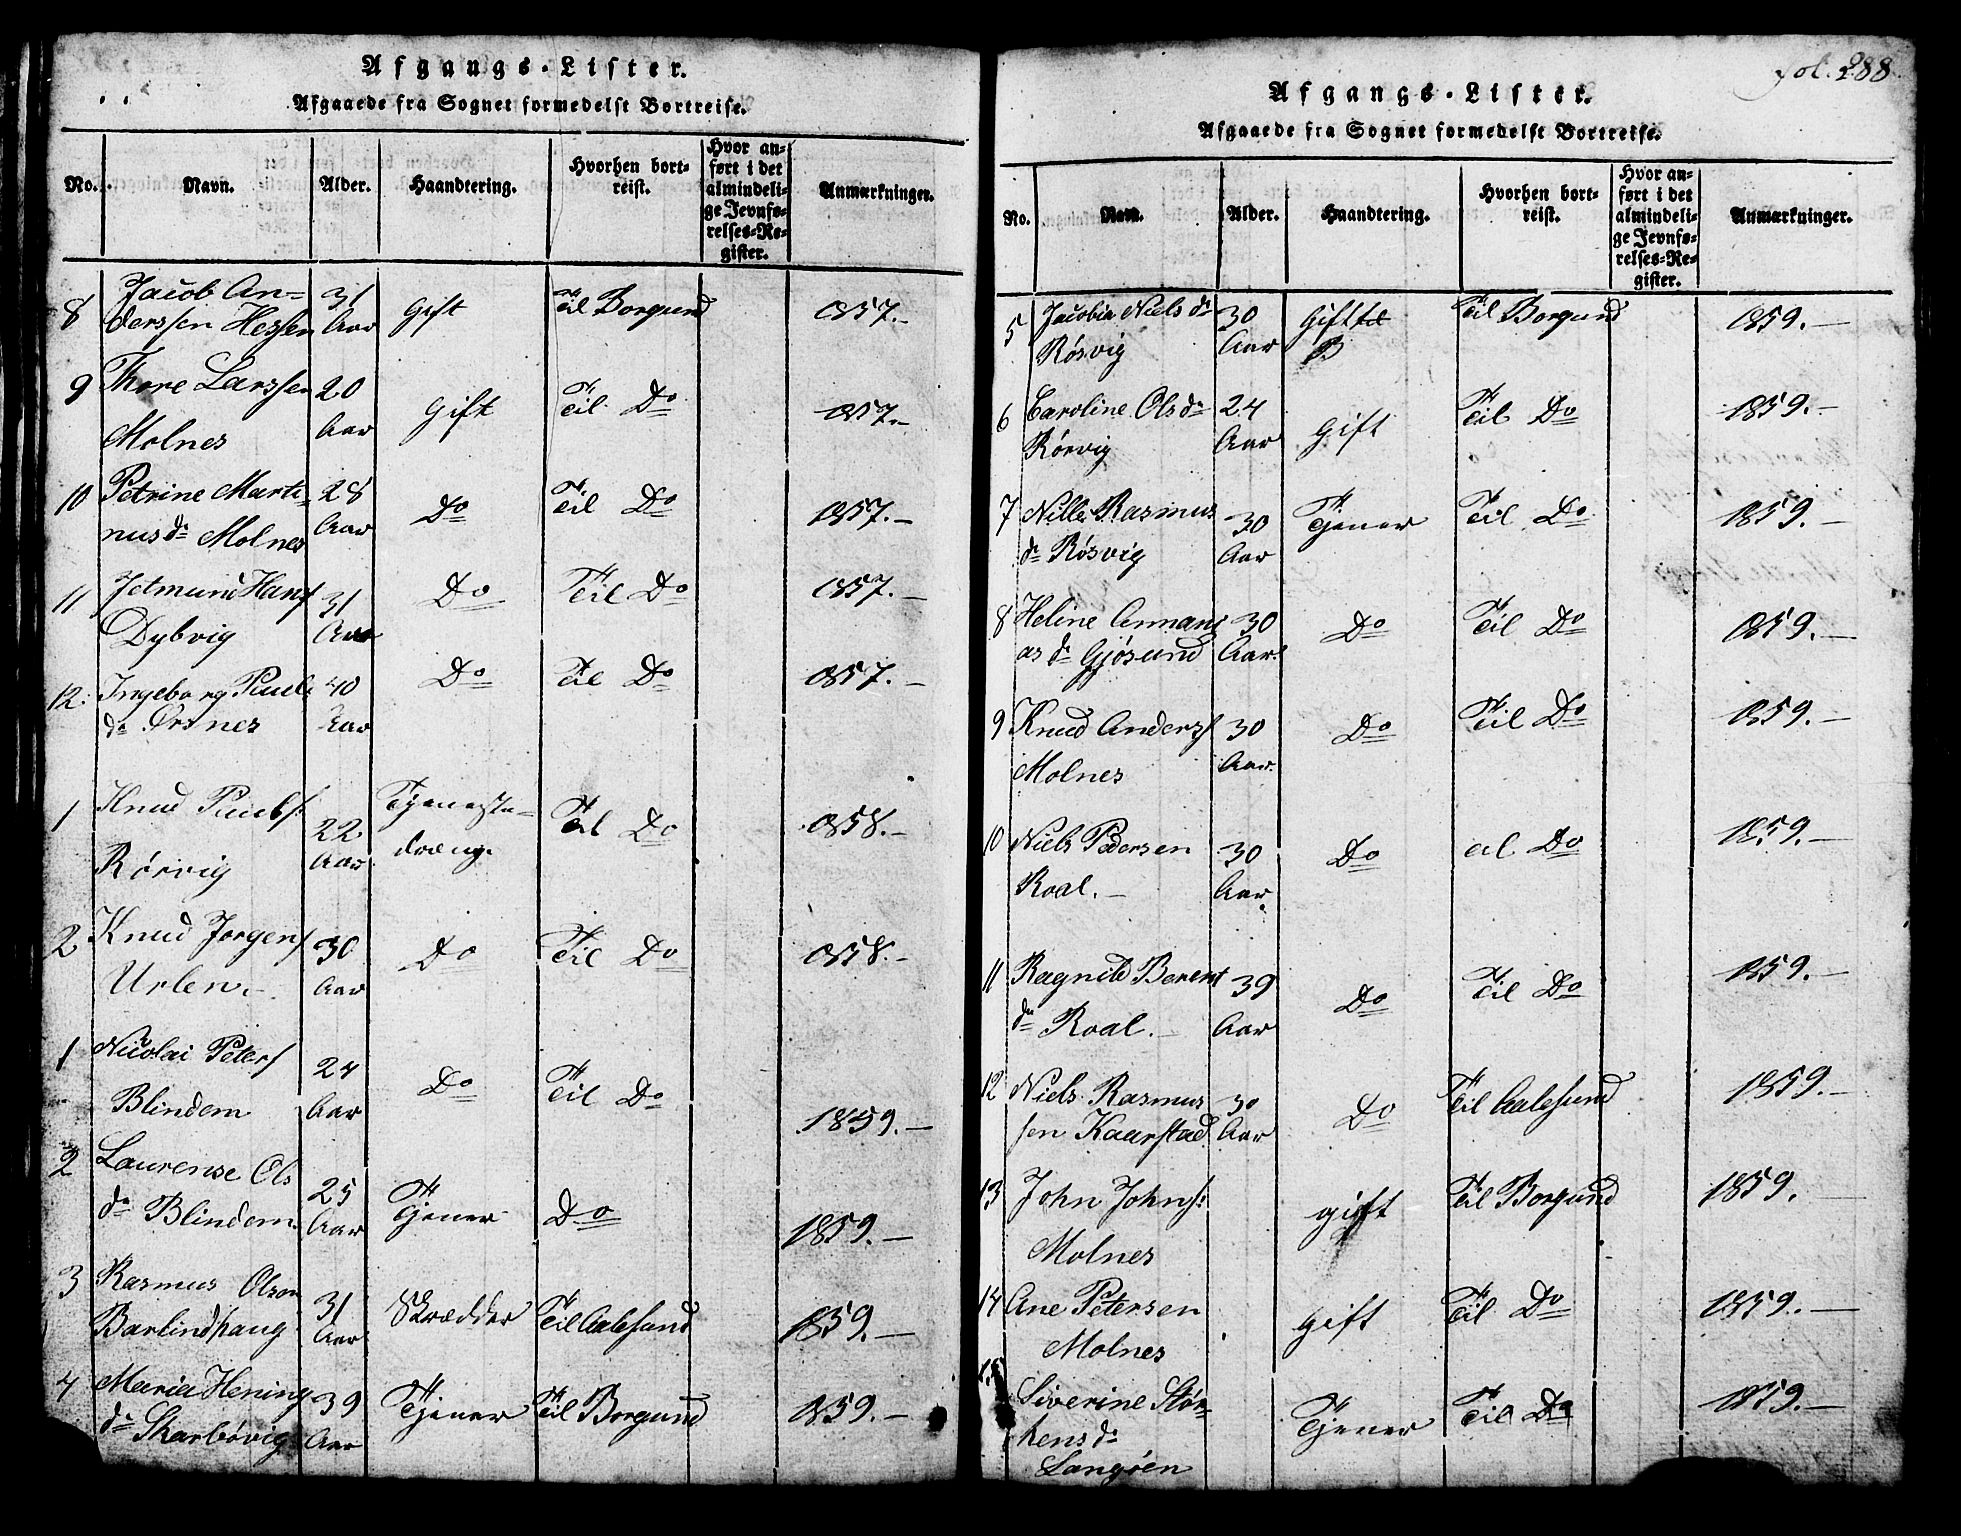 Afgangs-Lister.
Afgaaede fra Sognet formedelst Bortreise.
No. Navn. Alder. Haandtering. Hvorhen bort-reist. Hvor an-ført i det almindeli-ge Jevnfø-relses-Re-gister. Anmærkninger.
8 Jacob An- 31 Gift Til Borgund 1857.-
derssen Hessen Aar
9 Thore Larssen 20 Gift Til Do 1857.-
Molnes Aar
10 Petrine Marti- 28 Do Til Do 1857.-
nusdr Molnes Aar
11 Jetmund Hansf 31 Do Til Do 1857.-
Dybvig Aar
12. Ingeborg Pauls 40 Do Til Do 1857.-
dr Ørsnes Aar
1 Knud Paulsf. 22 Tjeneste- Til Do 1858.-
Rørvig Aar. dreng.
2 Knud Jørgensf 30 Do Til Do 1858.-
Urlen.- Aar
1 Nicolai Petersf 24 Do Til Do 1859.-
Blindem Aar
2 Laurense Ols 25 Tjener Do 1859.-
dr Blindem. Aar
3 Rasmus Olsen 31 Skrædder Til Aalesund 1859.-
Barlindhaug Aar
4 Maria Hening 39 Tjener Til Borgund 1859.-
dr Skarbøvig Aar
fol. 288.
Afgangs-Lister.
Afgaaede fra Sognet formedelst Bortreise.
No. Navn. Alder. Haandtering. Hvorhen bort-reist. Hvor an-ført i det almindeli-ge Jevnfø-relses-Re-gister. Anmærkninger.
5 Jacobia Niels dr 30 Gift til Til Borgund 1859.-
Røsvig Aar B
6 Caroline Olsdr 24 Gift Til Do 1859.-
Rørvig Aar
7 Nille Rasmus 30 Tjener Til Do 1859.-
dr Røsvig Aar
8 Heline Annani 30 Do Til Do 1859.-
as dr Gjøsund Aar.
9 Knud Andersf 30 Do Til Do 1859.-
Molnes Aar.
10 Niels Pedersen 30 Do Til Do 1859.-
Roal.- Aar.
11 Ragnild Berent 39 Do Til Do 1859.-
dr Roal.- Aar
12 Niels Rasmus 30 Do Til Aalesund 1859.-
sen Kaarstad Aar
13 John Johnsf. gift Til Borgund 1859.
Molnes
14 Ane Petersen gift Til Do 1859.-
Molnes
15 Siverine Stør- Tjener Til Do 1859.-
kens dr
Langøen